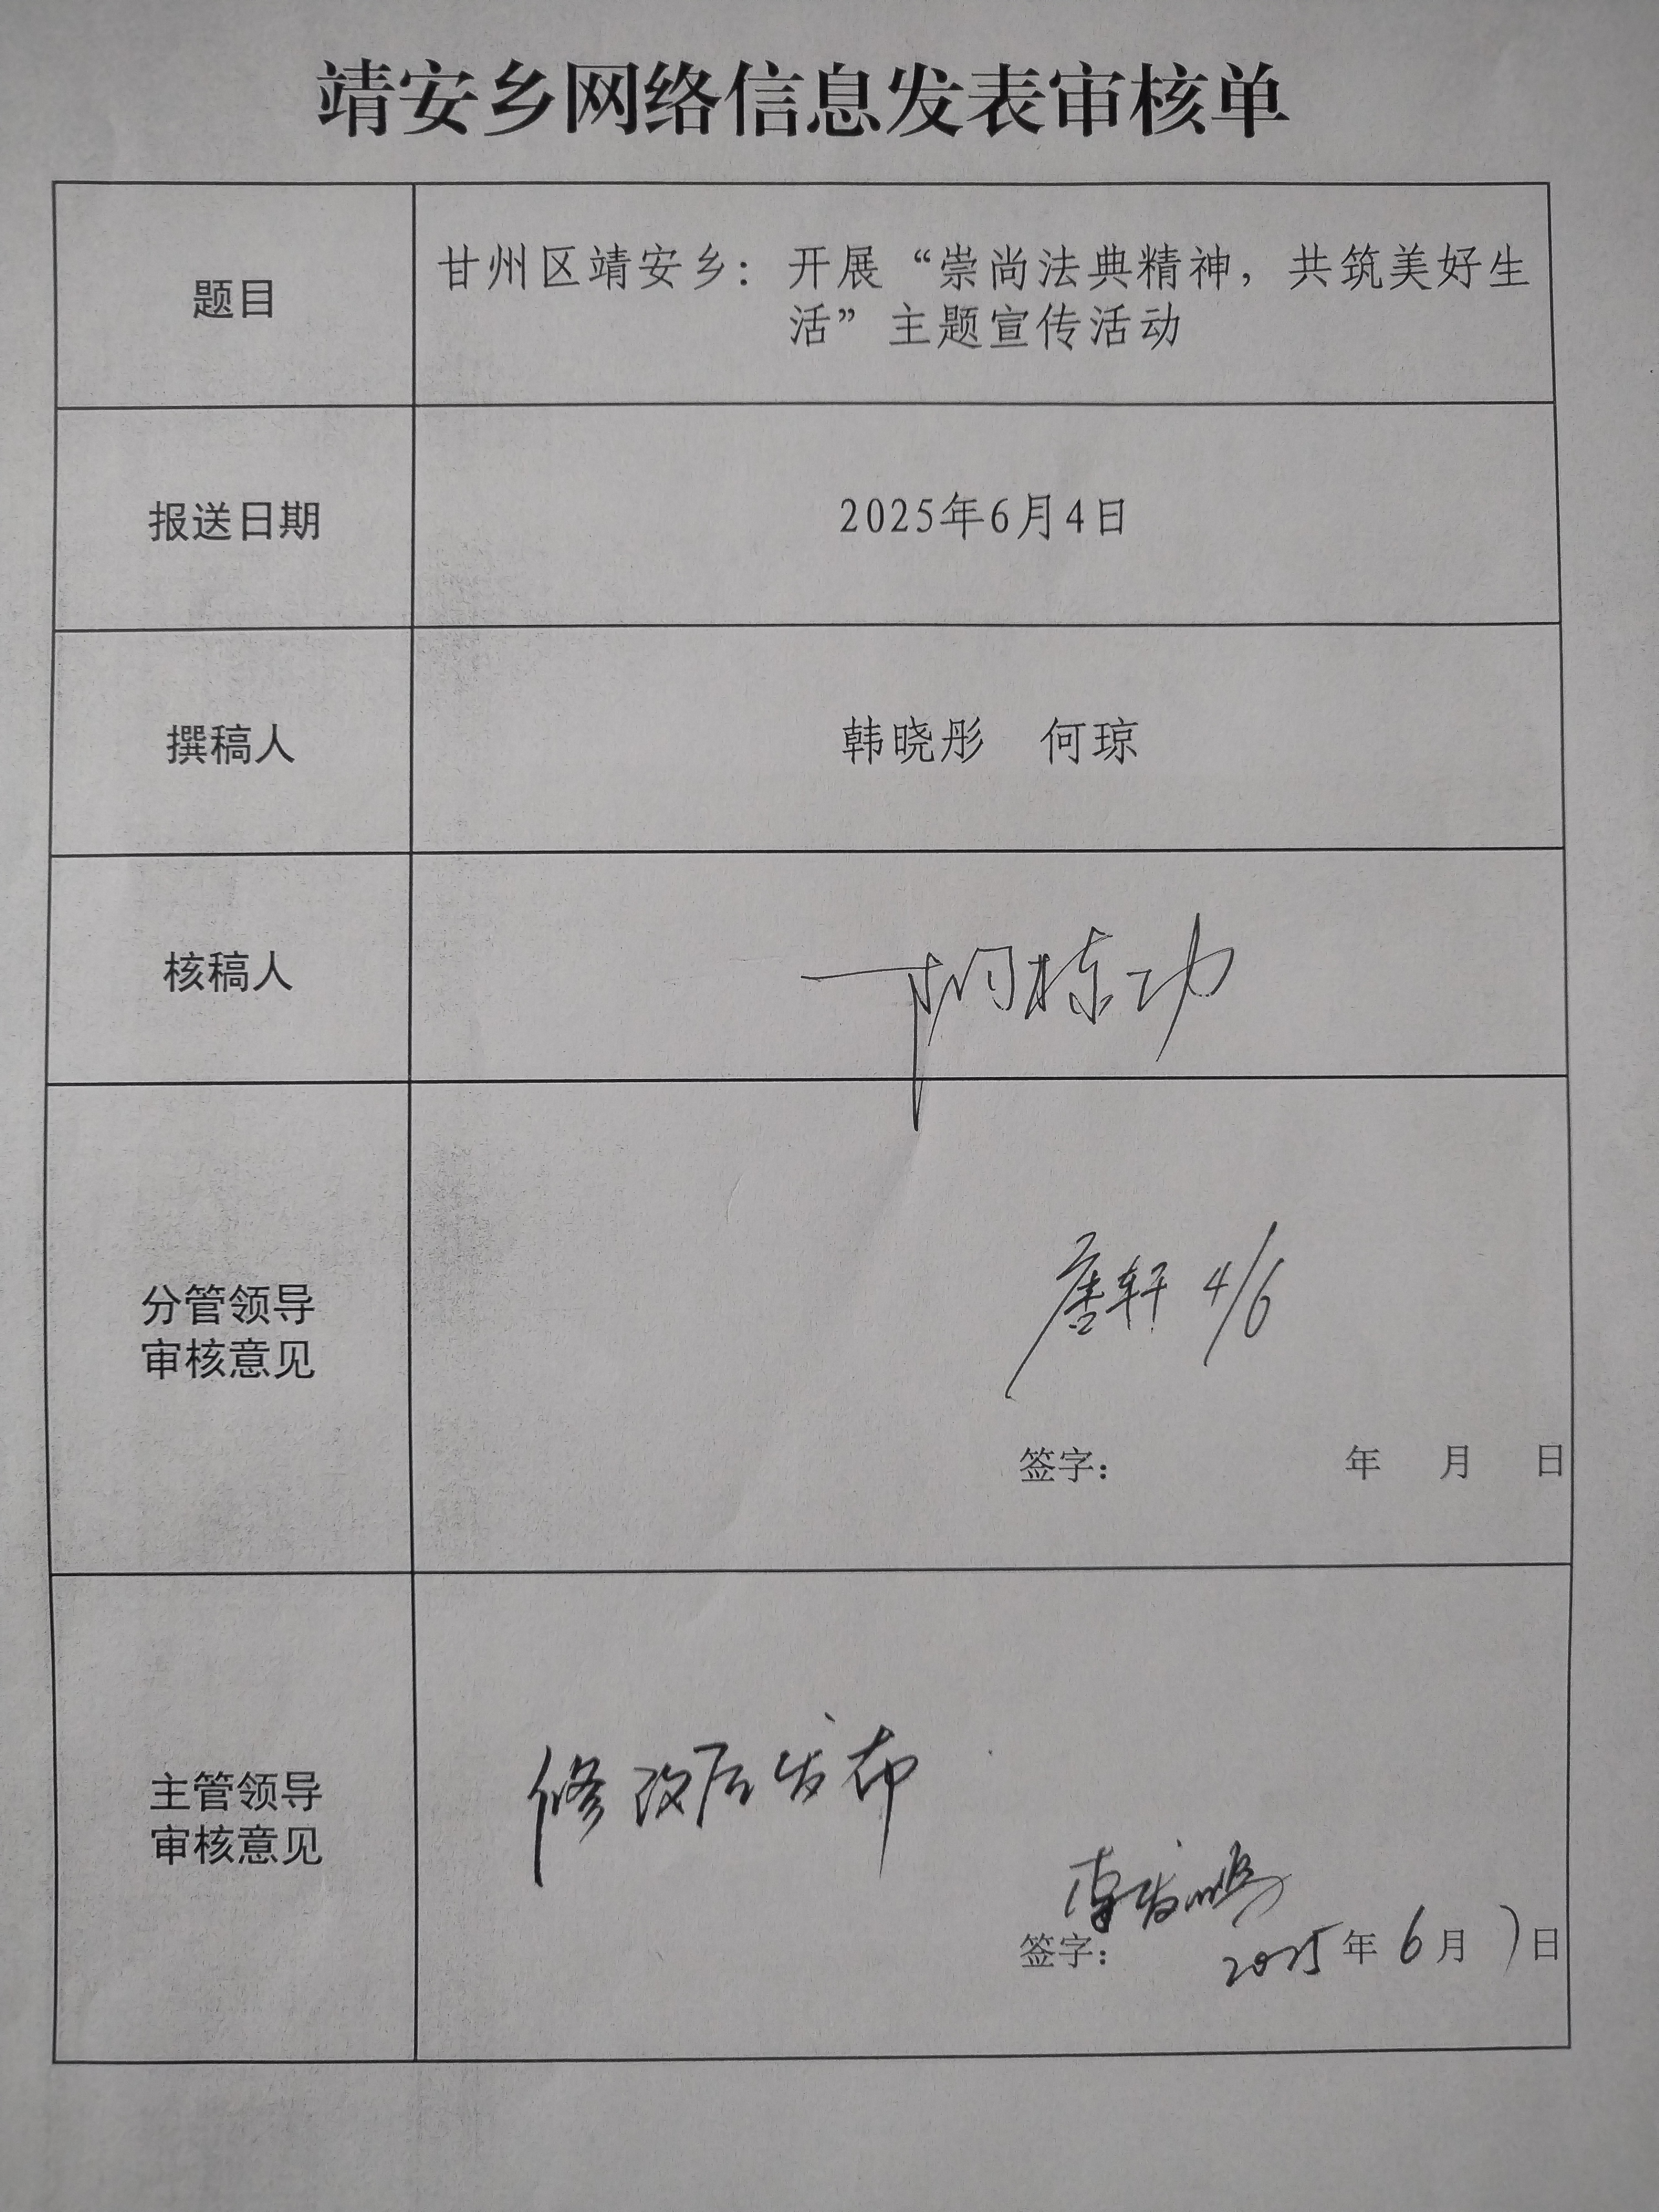 靖安乡网络信息发表审核单
题目
甘州区靖安乡：开展“崇尚法典精神，共筑美好生
活”主题宣传活动
报送日期
2025年6月4日
撰稿人
韩晓彤 何琼
核稿人
栋功
分管领导
审核意见
唐轩 4/6
签字： 年 月 日
主管领导
审核意见
修改后发布
签字： 2025年6月7日